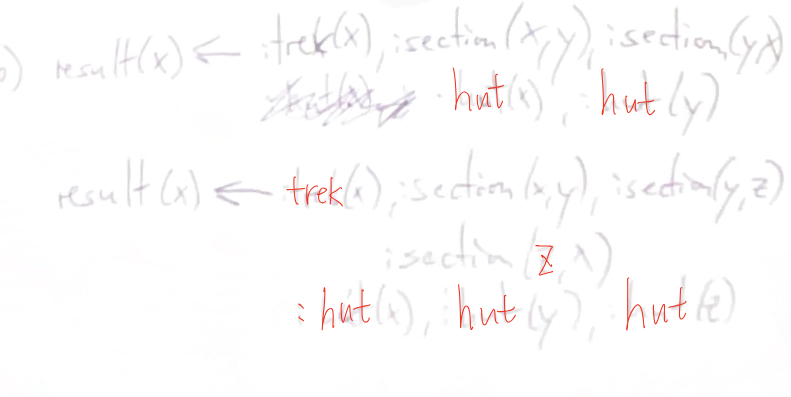 b) result(x) ← :trek(x), :section(x,y), :section(y,x)
:hut(x), :hut(y)
result(x) ← :trek(x), :section(x,y), :section(y,z)
:section(z,x)
:hut(x), :hut(y), :hut(z)